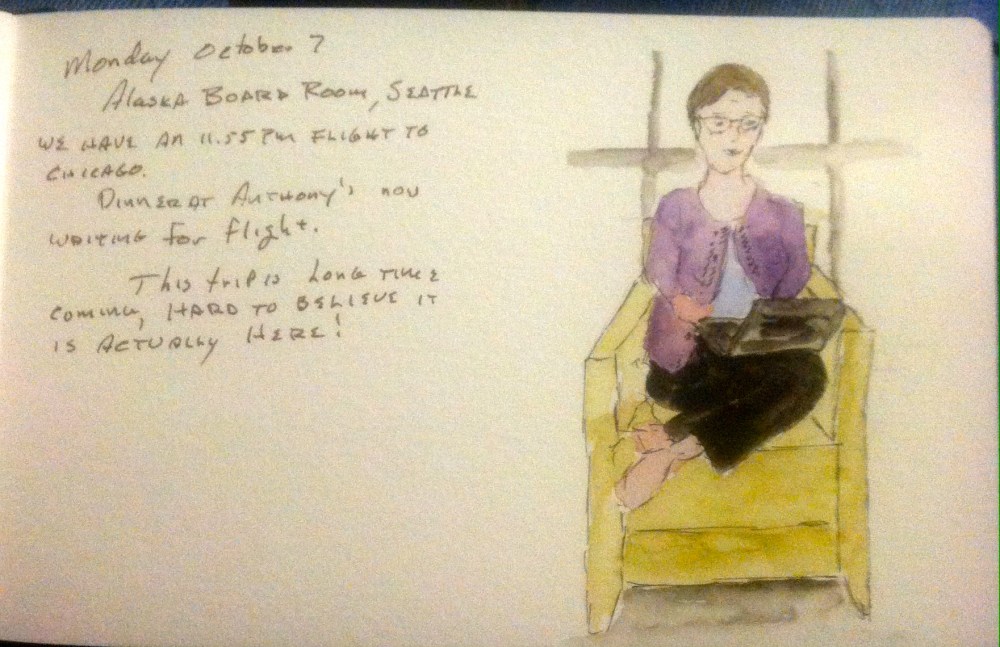 Monday October 7
Alaska Board Room, Seattle
WE HAVE AN 11.55 PM FLIGHT TO
CHICAGO.
Dinner at Anthony's now
waiting for flight.
This trip is long time
coming, HARD TO BELIEVE IT
IS ACTUALLY HERE!